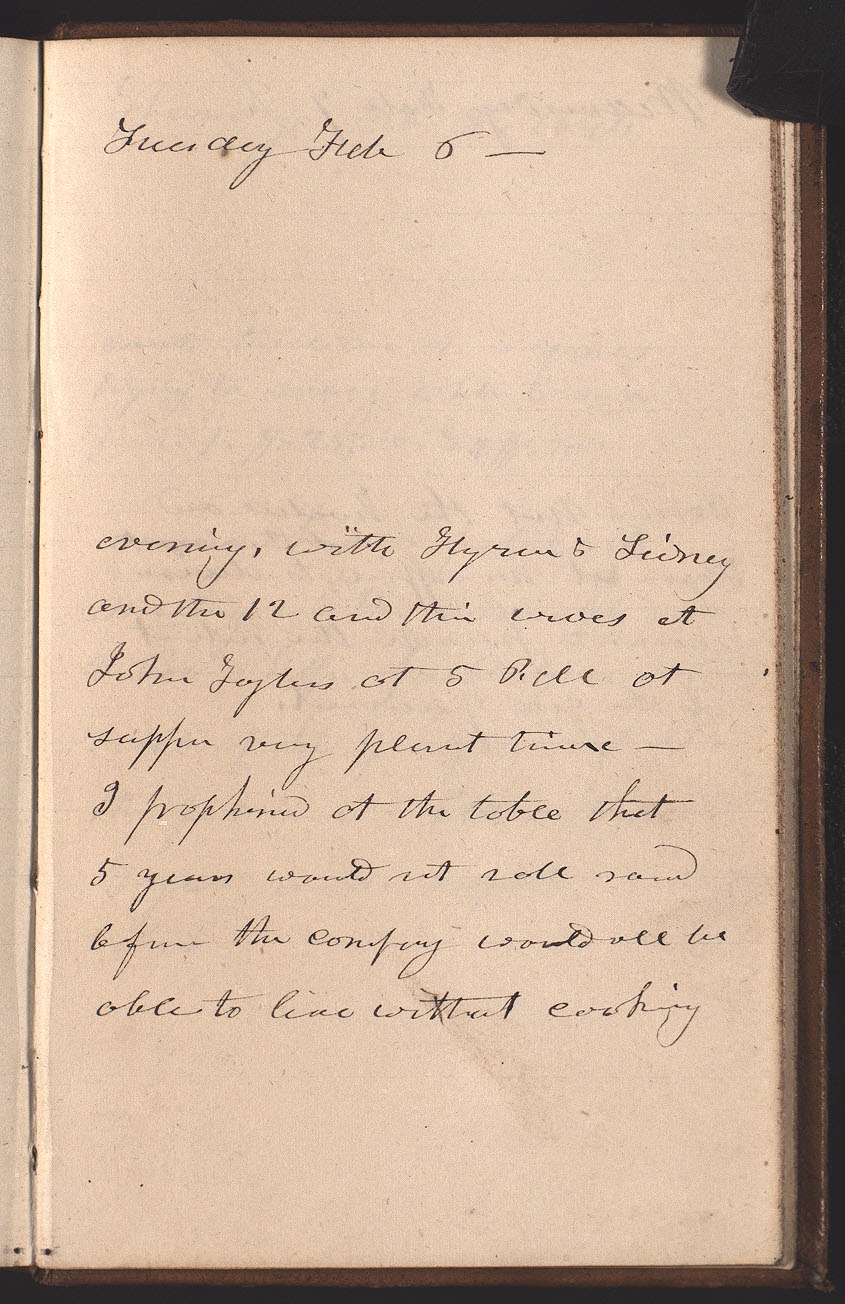 Tuesday Feb 6 —
evening, with Hyrum & Sidney
and the 12 and thir wives at
John Taylors at 5 P.M at
supper very plesnt time —
I prophisied at the table that
5 years would not roll round
before the company would all be
able to live without cooking